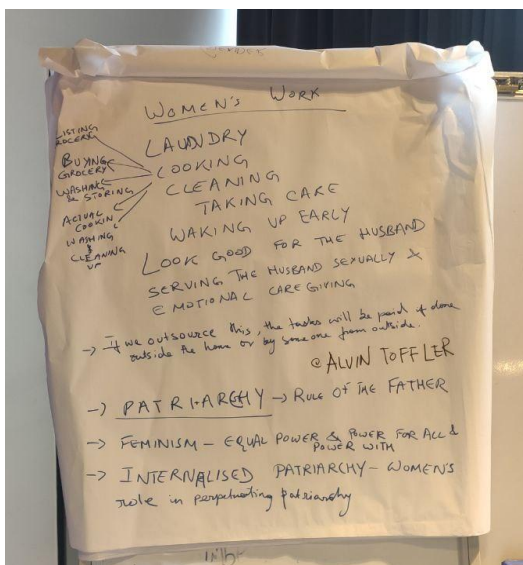 WOMEN'S WORK
LISTING
GROCERY
BUYING
GROCERY
WASHING
& STORING
ACTUAL
COOKIN
WASHING
&
CLEANING
UP
LAUNDRY
COOKING
CLEANING
TAKING CARE
WAKING UP EARLY
LOOK GOOD FOR THE HUSBAND
SERVING THE HUSBAND SEXUALLY &
EMOTIONAL CARE GIVING
-> If we outsource this, the tasks will be paid if done
outside the home or by someone from outside.
@ ALVIN TOFFLER
-> PATRIARCHY -> RULE OF THE FATHER
-> FEMINISM - EQUAL POWER & POWER FOR ALL &
POWER WITH
-> INTERNALISED PATRIARCHY - WOMEN'S
role in perpetuating patriarchy